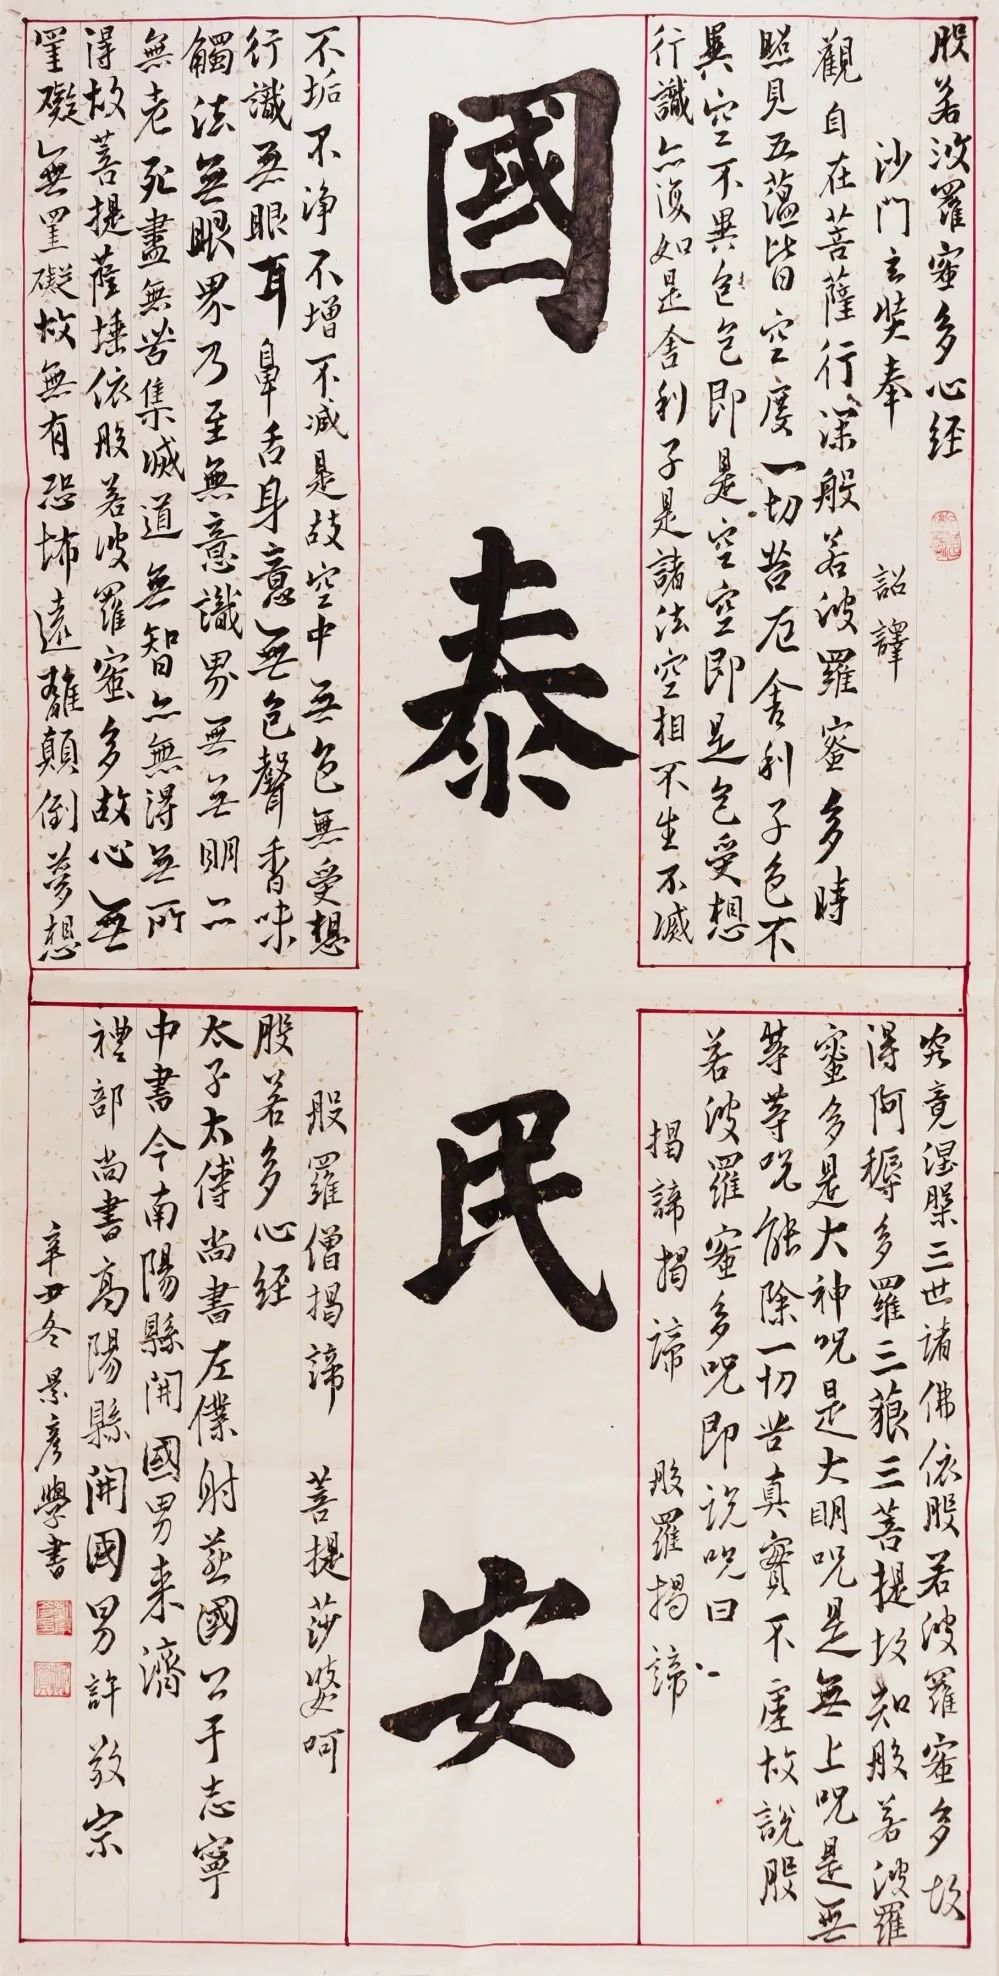 國泰民安
般若波羅蜜多心經
沙門玄奘奉 詔譯
觀自在菩薩行深般若波羅蜜多時
照見五蘊皆空度一切苦厄舍利子色不
異空不異色色即是空空即是色受想
行識亦復如是舍利子是諸法空相不生不滅
不垢不淨不增不減是故空中無色無受想
行識無眼耳鼻舌身意無色聲香味
觸法無眼界乃至無意識界無無明亦
無老死盡無苦集滅道無智亦無得無所
得故菩提薩埵依般若波羅蜜多故心無
罣礙無罣礙故無有恐怖遠離顛倒夢想
究竟涅槃三世諸佛依般若波羅蜜多故
得阿耨多羅三藐三菩提故知般若波羅
蜜多是大神咒是大明咒是無上咒是無
等等咒能除一切苦真實不虛故說般
若波羅蜜多咒即說咒曰
揭諦揭諦 般羅揭諦
般羅僧揭諦 菩提莎婆呵
般若多心經
太子太傅尚書左僕射燕國公于志寧
中書令南陽縣開國男来濟
禮部尚書高陽縣開國男許敬宗
辛丑冬景彥學書